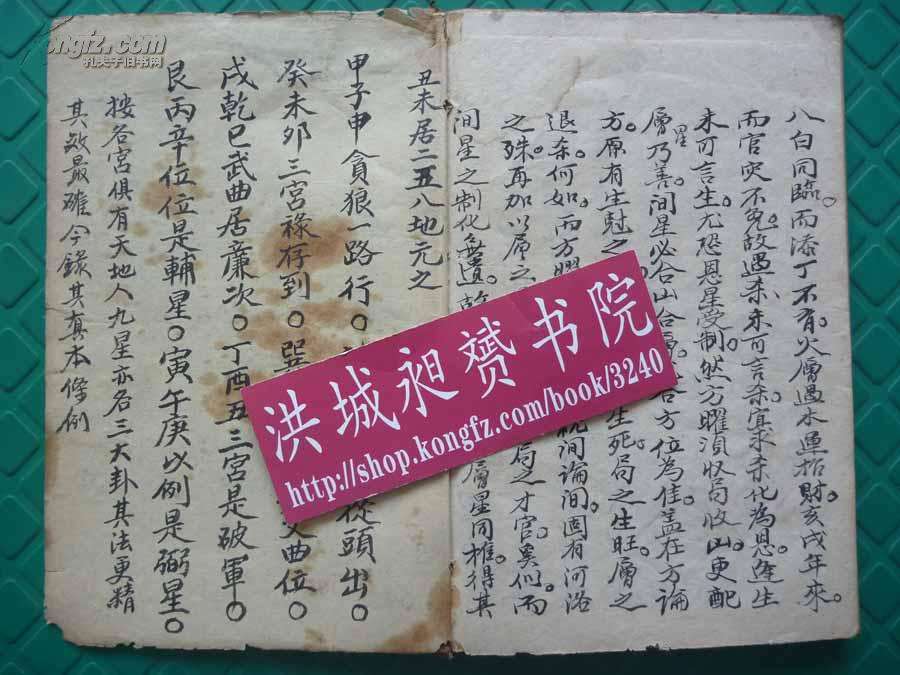 八白同臨。而添丁不育。火層遇水運招財。亥戌年來。
而官灾不免。故遇杀未可言杀。宜求杀化為恩。逢生
未可言生。尤恐恩星受制。然方曜須收局收山。更配
層星乃善。間星必合山合層
合方位為佳。盖在方論
方。原有生尅之
生死。局之生旺。層之
退杀。何如。而方曜
就間論間。固有河洛
之殊。再加以層之
局之才官。奚似。而
間星之制化無遺。
層星同推得其
丑未居二五八地元之
甲子申貪狼一路行。
從頭出。
癸未卯三宮祿存到。巽
文曲位。
戌乾巳武曲居廉次。丁酉丑三宮是破軍。
艮丙辛位位是輔星。寅午庚以例是弼星。
按各宮俱有天地人九星亦名三大卦其法更精
其效最確今錄其真本條例
洪城昶赟书院
http://shop.kongfz.com/book/3240
kongfz.com
孔夫子旧书网